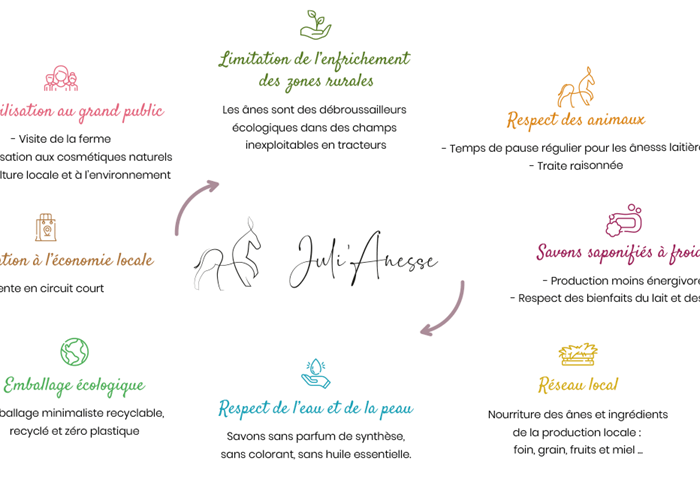 Limitation de l'enfrichement
des zones rurales
Les ânes sont des débroussailleurs
écologiques dans des champs
inexploitables en tracteurs
Respect des animaux
- Temps de pause régulier pour les ânesss laitière
- Traite raisonnée
Savons saponifiés à froid
- Production moins énergivore
- Respect des bienfaits du lait et des
Réseau local
Nourriture des ânes et ingrédients
de la production locale :
foin, grain, fruits et miel ...
Respect de l'eau et de la peau
Savons sans parfum de synthèse,
sans colorant, sans huile essentielle.
Emballage écologique
ballage minimaliste recyclable,
recyclé et zéro plastique
tion à l'économie locale
ente en circuit court
ilisation au grand public
- Visite de la ferme
sation aux cosmétiques naturels
lture locale et à l'environnement
Juli'Anesse